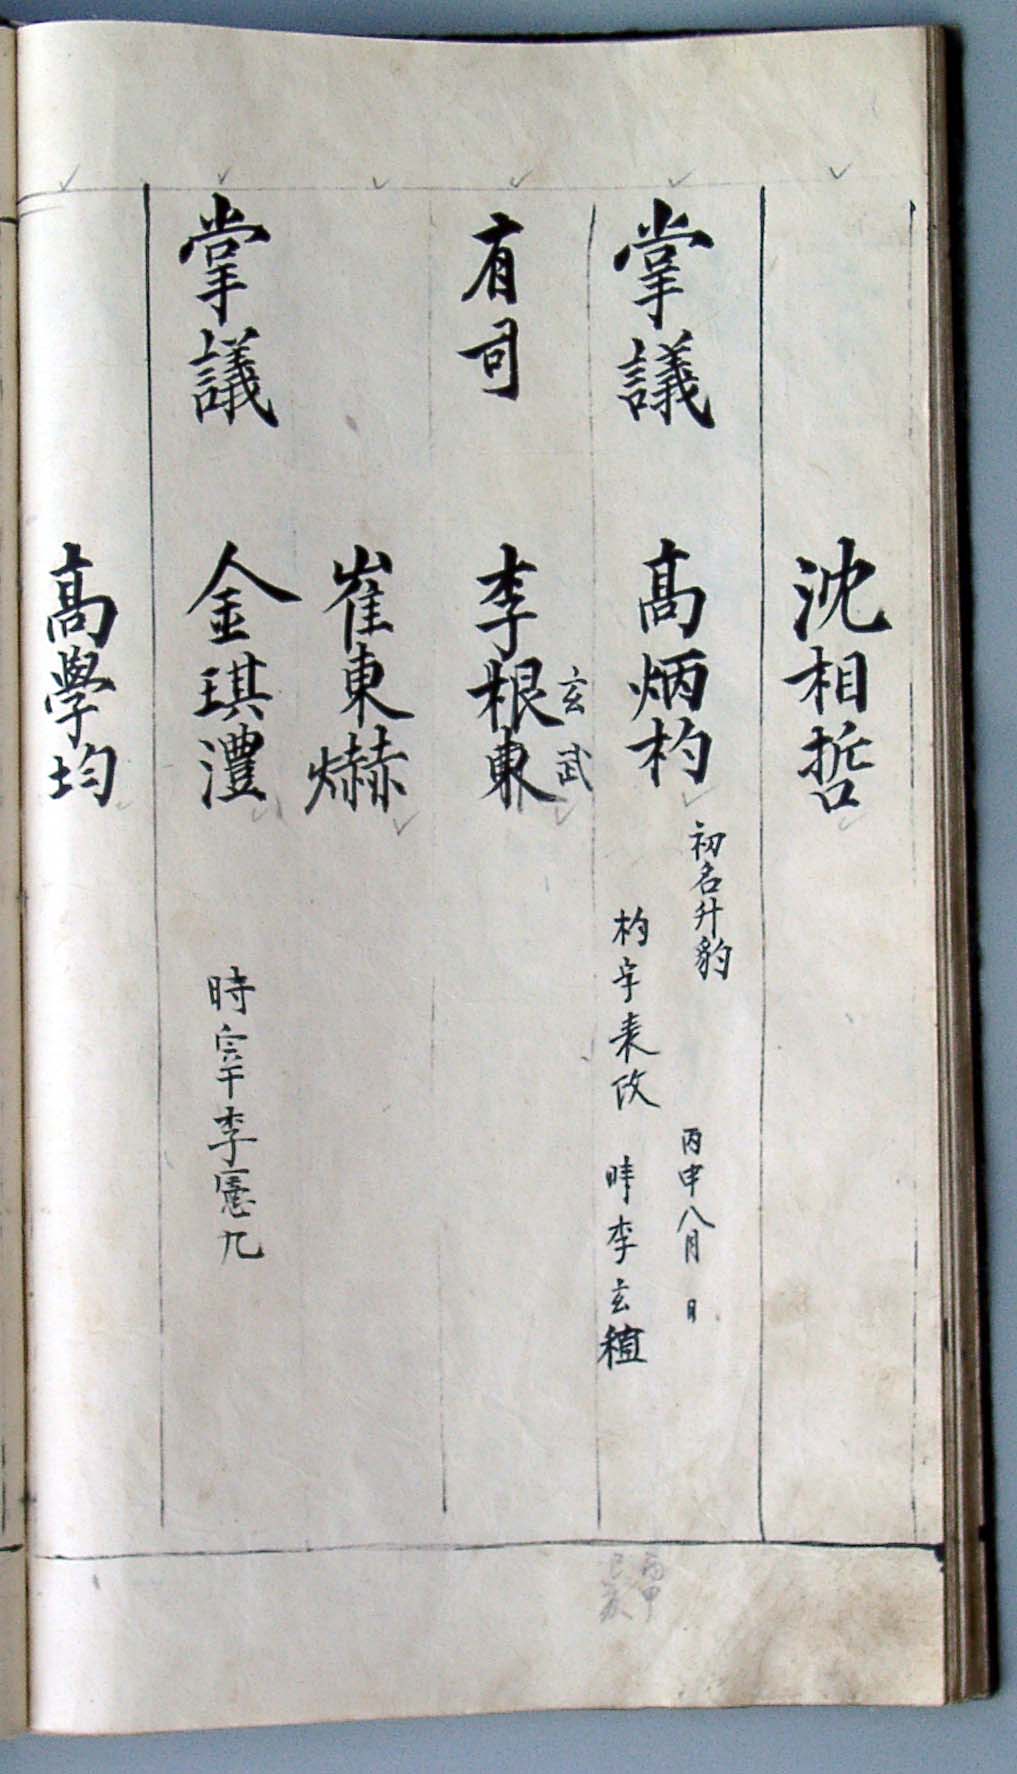 沈相哲
掌議 高炳杓
初名升豹
杓字表改
丙申八月 日
時李玄𥡴
有司 李根東
玄武
崔東爀
掌議 金琪澧
時宰李憲九
高學均
丙申